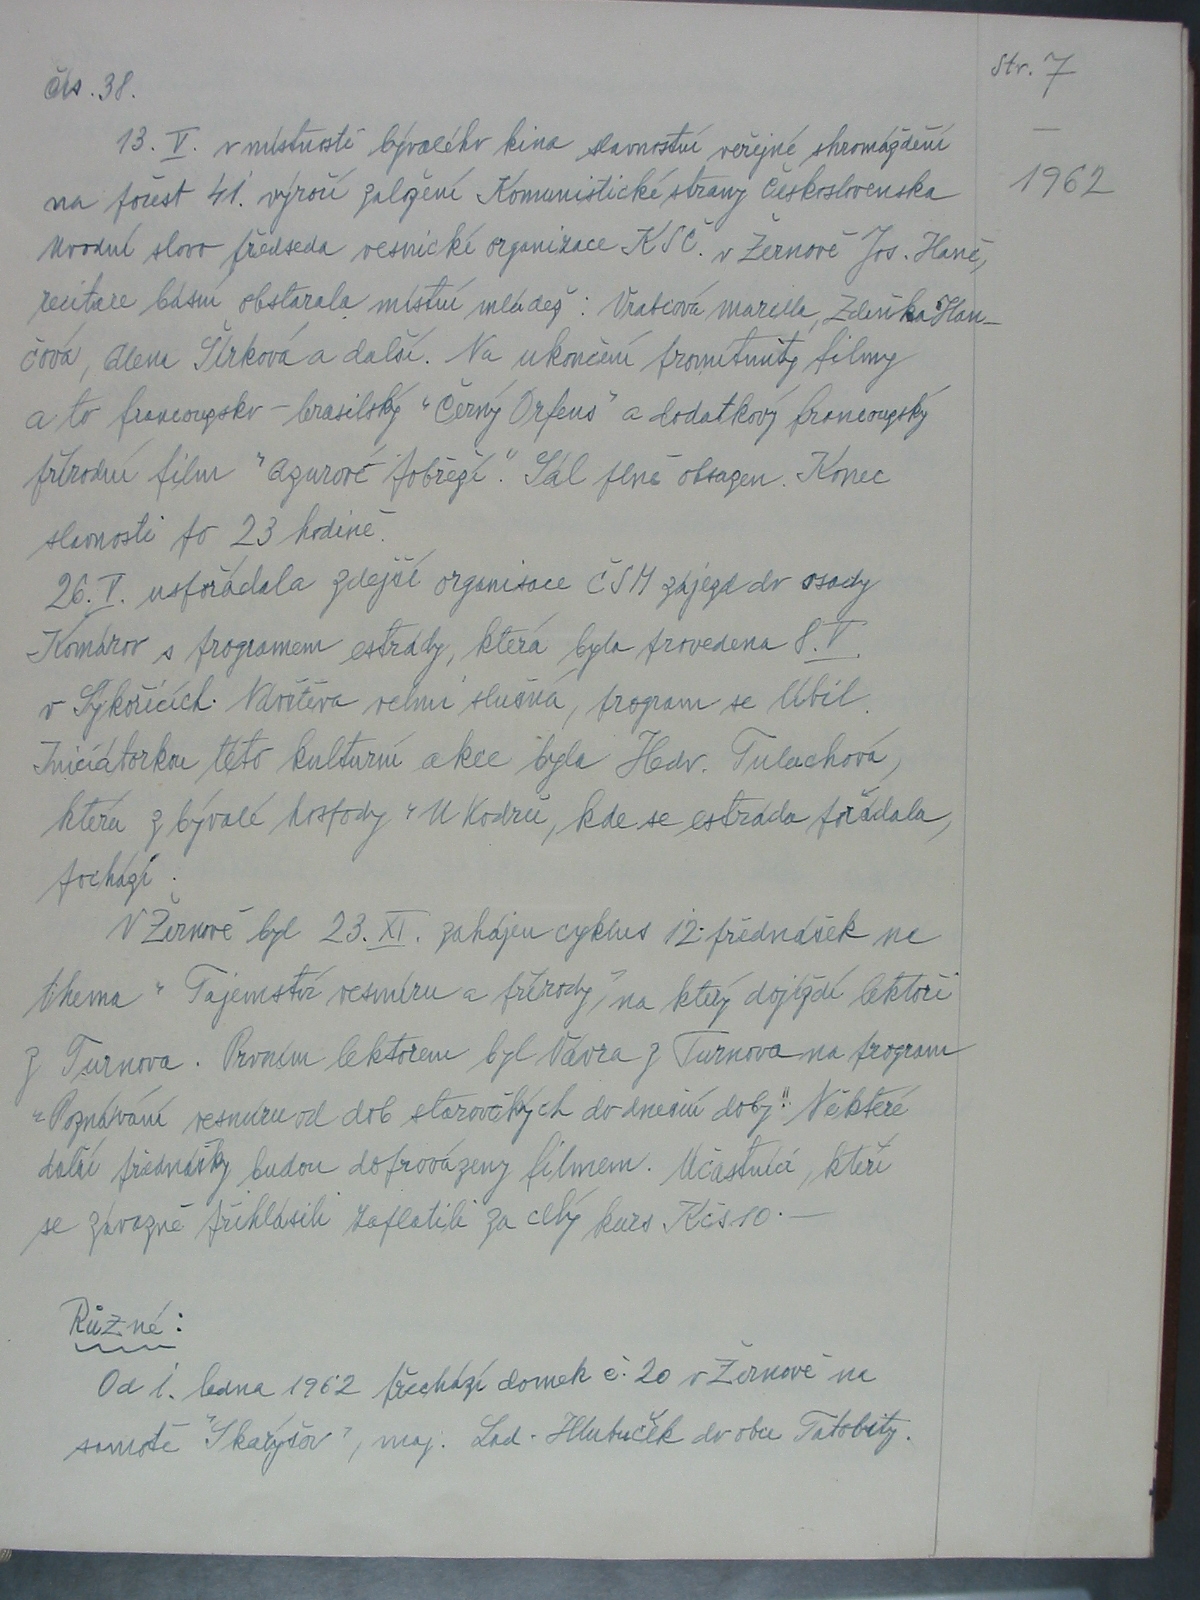 Str. 7
čís. 38.
1962
13. V. v místnosti bývalého kina slavnostní veřejné shromáždění
na počest 41. výročí založení Komunistické strany Československa
Úvodní slovo předseda vesnické organizace KSČ. v Žernově Jos. Hanč,
recitace básní obstarala místní mládež: Vrabcová Marcella, Zdeňka Han-
čová, Alena Šírková a další. Na ukončení promítnuty filmy
a to francouzsko-brasilský "Černý Orfeus" a dodatkový francouzský
přírodní film "Azurové pobřeží". Sál plně obsazen. Konec
slavnosti po 23 hodině.
26. V. uspořádala zdejší organisace ČSM zájezd do osady
Komárov s programem estrády, která byla provedena 8. V.
v Sýkořicích. Návštěva velmi slušná, program se líbil.
Iniciátorkou této kulturní akce byla Hedv. Tulachová,
která z bývalé hospody "U Kodrů, kde se estráda pořádala,
pochází.
V Žernově byl 23. XI. zahájen cyklus 12 přednášek na
thema "Tajemství vesmíru a přírody", na který dojíždí lektoři
z Turnova. Prvním lektorem byl Vávra z Turnova na program
"Poznávání vesmíru od dob starověkých do dnešní doby". Některé
další přednášky budou doprovázeny filmem. Účastníci, kteří
se závazně přihlásili zaplatili za celý kurs Kčs 10.—
Různé:
Od 1. ledna 1962 přechází domek č. 20 v Žernově na
samotě "Skaryšov", maj. Lad. Hlubuček do obce Tatobity.